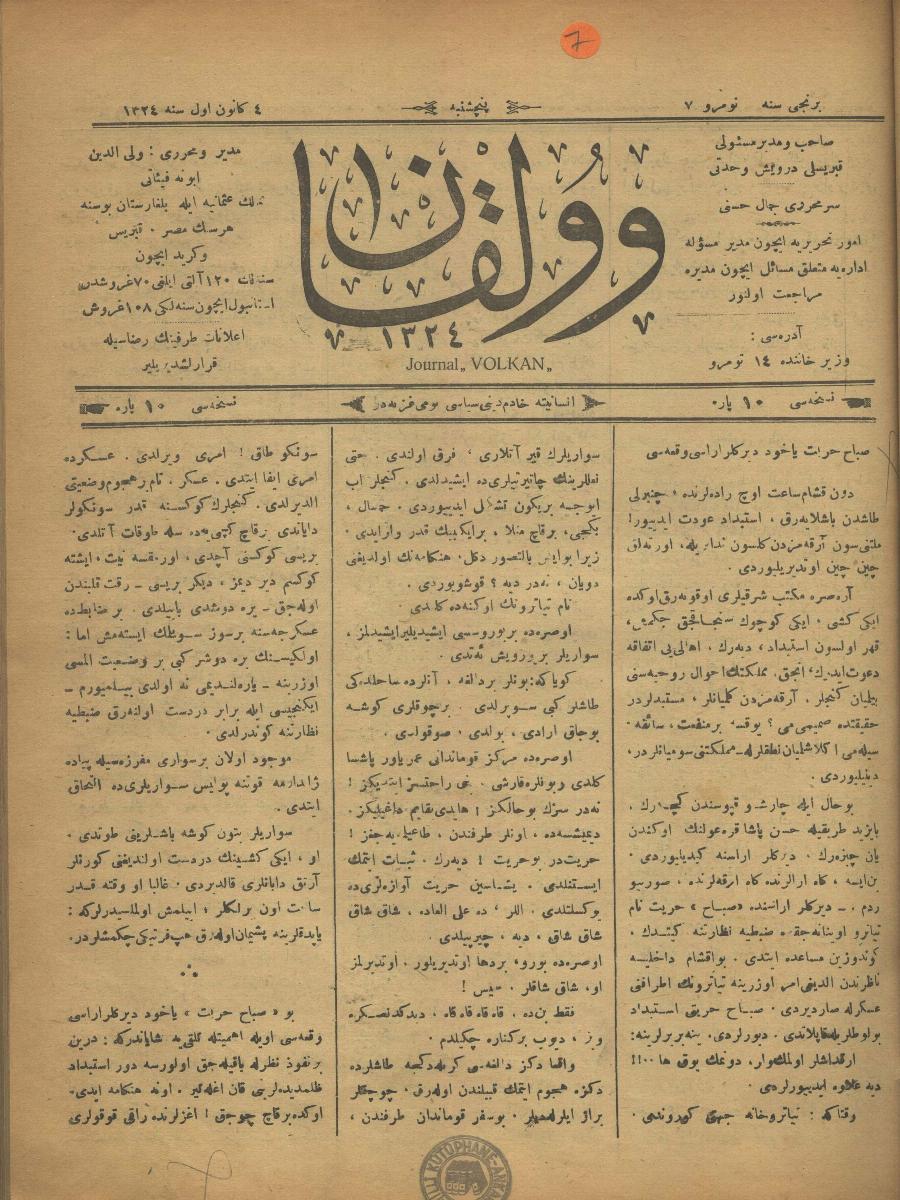 7
برنجی سنه نومرو ٧
پنچشنبه
٤ کانون اول سنه ١٣٢٤
صاحب ومدیر مسئولی
قبریسلی درویش وحدتی
سرمحرری جمال حسنی
امور تحریریه ایچون مدیر مسؤله
اداره‌یه متعلق مسائل ایچون مدیره
مراجعت اولنور
آدره‌سی :
وزیر خاننده ١٤ نومرو
وولقان
١٣٢٤
Journal „ VOLKAN „
مدیر ومحرری : ولی الدین
ابونه فیئاتی
عثمانیه ایله بلغارستان بوسنه
هرسك مصر ٠ قبریس
وکرید ایچون
١٢٠ آلتی ایلغی ٧٠ غروشدر
ایچون سنه‌لکی ١٠٨ غروش
اعلانات طرفینك رضاسیله
قرارلشدیریلیر
نسخه‌سی ١٠ پاره
انسانیته خادم دینی سیاسی یومی غزته‌در
نسخه‌سی ١٠ پاره
صباح حریت یاخود دیرکلر اراسی وقعه‌سی
دون قشام ساعت اوچ راده‌لرنده ، چنبرلی
طاشدن باشلایه‌رق ، استبداد عودت ایدییور!
ملتی سون آرقه‌مزدن کلسون
چین چین اوندیریلیوردی .
آره‌صره مکتب شرقیلری اوقونه‌رق اوکده
ایکی کشی ، ایکی کوچوك سنجاقجق چکمش ،
قهر اولسون استبداد ، دیه‌رك ، اهالی‌یی اتفاقه
دعوت ایدیر، انجق، مملکتك احوال روحیه‌سنی
بیلیان کنجلر . آرقه‌مزدن کلیانلر ، مستبدلردر
حقیقتده صمیمی می ؟ یوقسه بر منفعت ، سائقه
سیله‌می اکلاشلیان نطقلرله مملکتنی سومیانلردر ،
دینیلیوردی .
بو حال ایله چارشو قپوسندن کچه‌رك ،
بایزید طریقیله حسن پاشا قره‌غولنك اوکندن
یان چیزه‌رك . دیرکلر اراسنه کیدیلیوردی .
بن‌ایسه ، کاه ارالرنده کاه ارقه‌لرنده ، صورییو
ردم . ـ دیرکلر اراسنده «صباح» حریت نام
تیاترو اوینانه‌جقده ضبطیه نظارتنه کیتدك ،
کوندوزین مساعده ایتدی . بواقشام داخلیه
ناظرندن الدیغی امر اوزرینه تیاترونك اطرافنی
عسکرله صاردیردی . صباح حریتی استبداد
بولوطلریله قاپلاندی . دییورلردی. ینه بربرلرینه:
ارقداشلر اولمك وار، دونمك یوق ها ٠٠!!!
دیه علاوه ایدییورلردی .
وقتاکه : تیاتروخانه جهتی کوروندی .
سواریلرك قیر آتلاری ، فرق اولندی . حتی
نعللرینك چاتیرتیلری‌ده ایشیدلدی . کنجلر اب
ایوجه بریکون تشکل ایدییوردی . حمال ،
بکجی ، برقاچ منلا ، برایکی‌بیك قدر وارایدی .
زیرا بوایش بالتصور دکل . هنکامه‌نك اولدیغنی
دویان ، نه‌در دیه ؟ قوشویوردی .
نام تیاترونك اوکنه‌ده کلدی .
اوصره‌ده بر بوروسسی ایشیدیلیر ایشیدلمز ،
سواریلر بر یورویش ئه‌تدی .
کویا که: بونلر بر دالغه ، آنلرده ساحلده‌کی
طاشلر کبی سوپرلدی . برچوقلری کوشه
بوجاق ارادی ، بولدی . صوقولدی .
اوصره‌ده مرکز قوماندانی عمر یاور پاشا
کلدی وبونلره قارشی . نجی راحتسز ایتدیکز !
نه‌در سزك بو حالکز ؛ هایدی بقایم داغیلیکز .
دیمیشسه‌ده ، اونلر طرفندن ، طاغیلمیه‌جغز !
حریت‌در بوحریت ! دیه‌رك . ثبات ایتمك
ایستنلدی . یشاسین حریت آوازه‌لری‌ده
یوکسلتلدی . اللر ، ده علی العاده ، شاق شاق
شاق شاق ، دیه ، چیرپیلدی .
اوصره‌ده بورو، بردها اوتدیریلور . اوتدیرلمز
او، شاق شاقلر . سیس !
فقط بن‌ده ، قاه قاه قاه ، دیدکدنصکره
دیوب برکناره چکیلدم .
واقعا دکز دالغه‌سی کرمه‌دکجه طاشلرده
دکزه هجوم ایتمك قبیلندن اوله‌رق . چوجقلر
براز ایلرله‌دیلر . بوسفر قوماندان طرفندن ،
سونکو طاق ! امری ویرلدی . عسکرده
امری ایفا ایتدی . عسکر . تام ‌هجوم وضعیتی
الدیرلدی . کنجلرك کوکسنه قدر سونکولر
دایاندی برقاچ کشی‌یده سله طوقات آتلدی .
بریسی کوکسنی آچدی ، اورنفسه نیت ، ایشته
کوکسم دیر دیمز ، دیکر بریسی ـ رقت قلبندن
اوله‌جق ـ یره دوشدی بایلدی . بر ضابطده
عسکرجه‌سنه برسوز سویلمك ایسته‌مش اما :
اولکیسنك یره دوشر کبی بر وضعیت المسی
اوزرینه ـ یاره‌لندیمی نه اولدی بیلمیورم ـ
ایکنجیسی ایله برابر دردست اولنه‌رق ضبطیه
نظارتنه کوندرلدی .
موجود اولان برسواری مفرزه‌سیله پیاده
ژاندارمه قوتنه پولیس سواریلری‌ده التحاق
ایتدی .
سواریلر بتون کوشه باشلرینی طوتدی .
او ، ایکی کشینك دردست اولندیغنی کورنلر
آرتق دایاقلری قالدیردی . غالبا او وقته قدر
ساعت اون برلکلر ؛ ایپلمش اولملسیدرلرکه :
یاپدقلرینه پشیمان اوله‌رق هپ فرتیکی چکمشلردر.
بو «صباح حریت» یاخود دیرکلر اراسی
وقعه‌سی اویله اهمیتله تلقی‌یه شایاندرکه : درین
برنفوذ نظرله باقیله‌جق اولورسه دور استبداد
ظلمدیده‌لرینی قان اغله‌تیر . اوته هنکامه ایدی.
اوکده برقاچ چوجق ! اغزلرنده راقی قوقولری